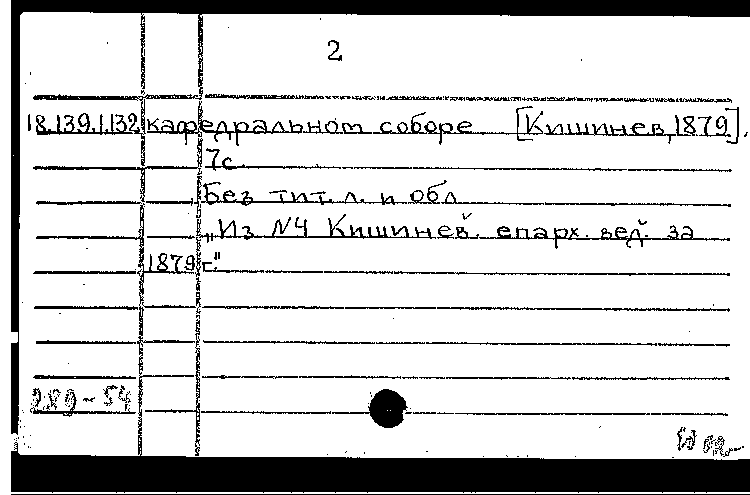 2
18.139.1.132 кафедральном соборе [Кишинев, 1879].
7с.
Без тит. л. и обл
„Из №4 Кишинев. епарх. вед. за
1879 г."
289-54